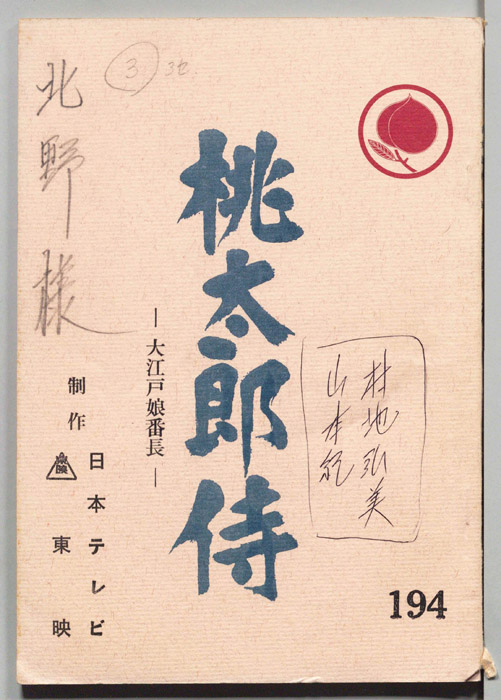 ③ 3セ
北野様
桃太郎侍
― 大江戸娘番長 ―
村地弘美
山本紀
制作
日本テレビ
東映
194